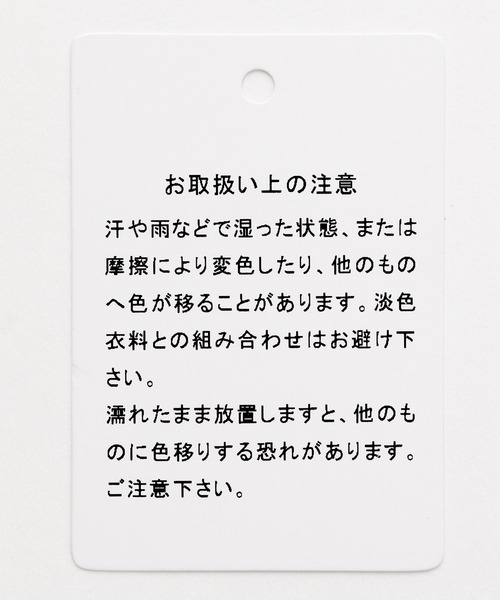 お取扱い上の注意
汗や雨などで湿った状態、または
摩擦により変色したり、他のもの
へ色が移ることがあります。淡色
衣料との組み合わせはお避け下
さい。
濡れたまま放置しますと、他のも
のに色移りする恐れがあります。
ご注意下さい。